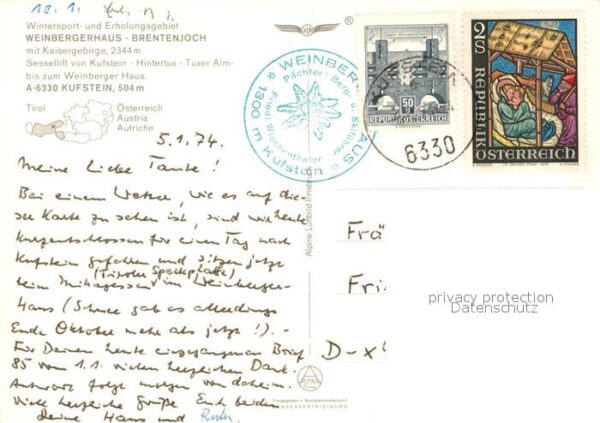 10.1.
Wintersport- und Erholungsgebiet
WEINBERGERHAUS - BRENTENJOCH
mit Kaisergebirge, 2344 m
Sessellift von Kufstein - Hintertux - Tuxer Alm-
bis zum Weinberger Haus.
A-6330 KUFSTEIN, 504 m
Tirol
Österreich
Austria
Autriche
5.1.74.
Meine liebe Tante!
Bei einem Wetter, wie es auf die-
ser Karte zu sehen ist, sind wir heute
kurzentschlossen für einen Tag nach
Kufstein gefahren und sitzen jetzt
(Tiroler Speckplatte)
beim Mittagessen im Weinberger-
Haus (Schnee gab es allerdings
Ende Oktober mehr als jetzt!).-
Für Deinen heute eingegangenen Brief
85 vom 1.1. vielen herzlichen Dank.
Antwort folgt morgen von daheim.
Viele herzliche Grüße Euch beiden
Deine Hans und Ruth
WEINBERGERHAUS
1300 m
Kufstein
Pächter: Berg- u. Skiführer
6330
50
REPUBLIK ÖSTERREICH
2 S
REPUBLIK
ÖSTERREICH
Alpine Luftbild Innsbruck
Frä
Fri
D-x
privacy protection
Datenschutz
ALPINE
Freigegeben v. Bundesministerium f.
LANDESVERTEIDIGUNG